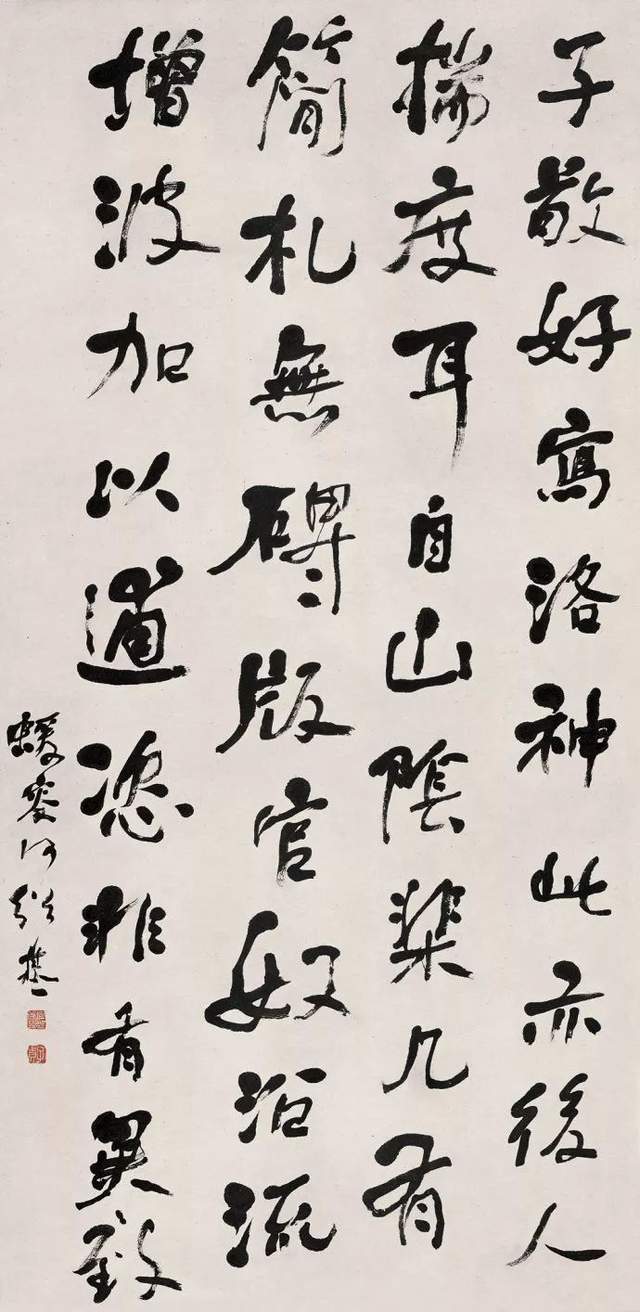 子敬好寫洛神此亦後人
揣度耳自山陰棐几有
簡札無碑版官奴沿流
增波加以遒恣雅有異致
蝯叟何紹基